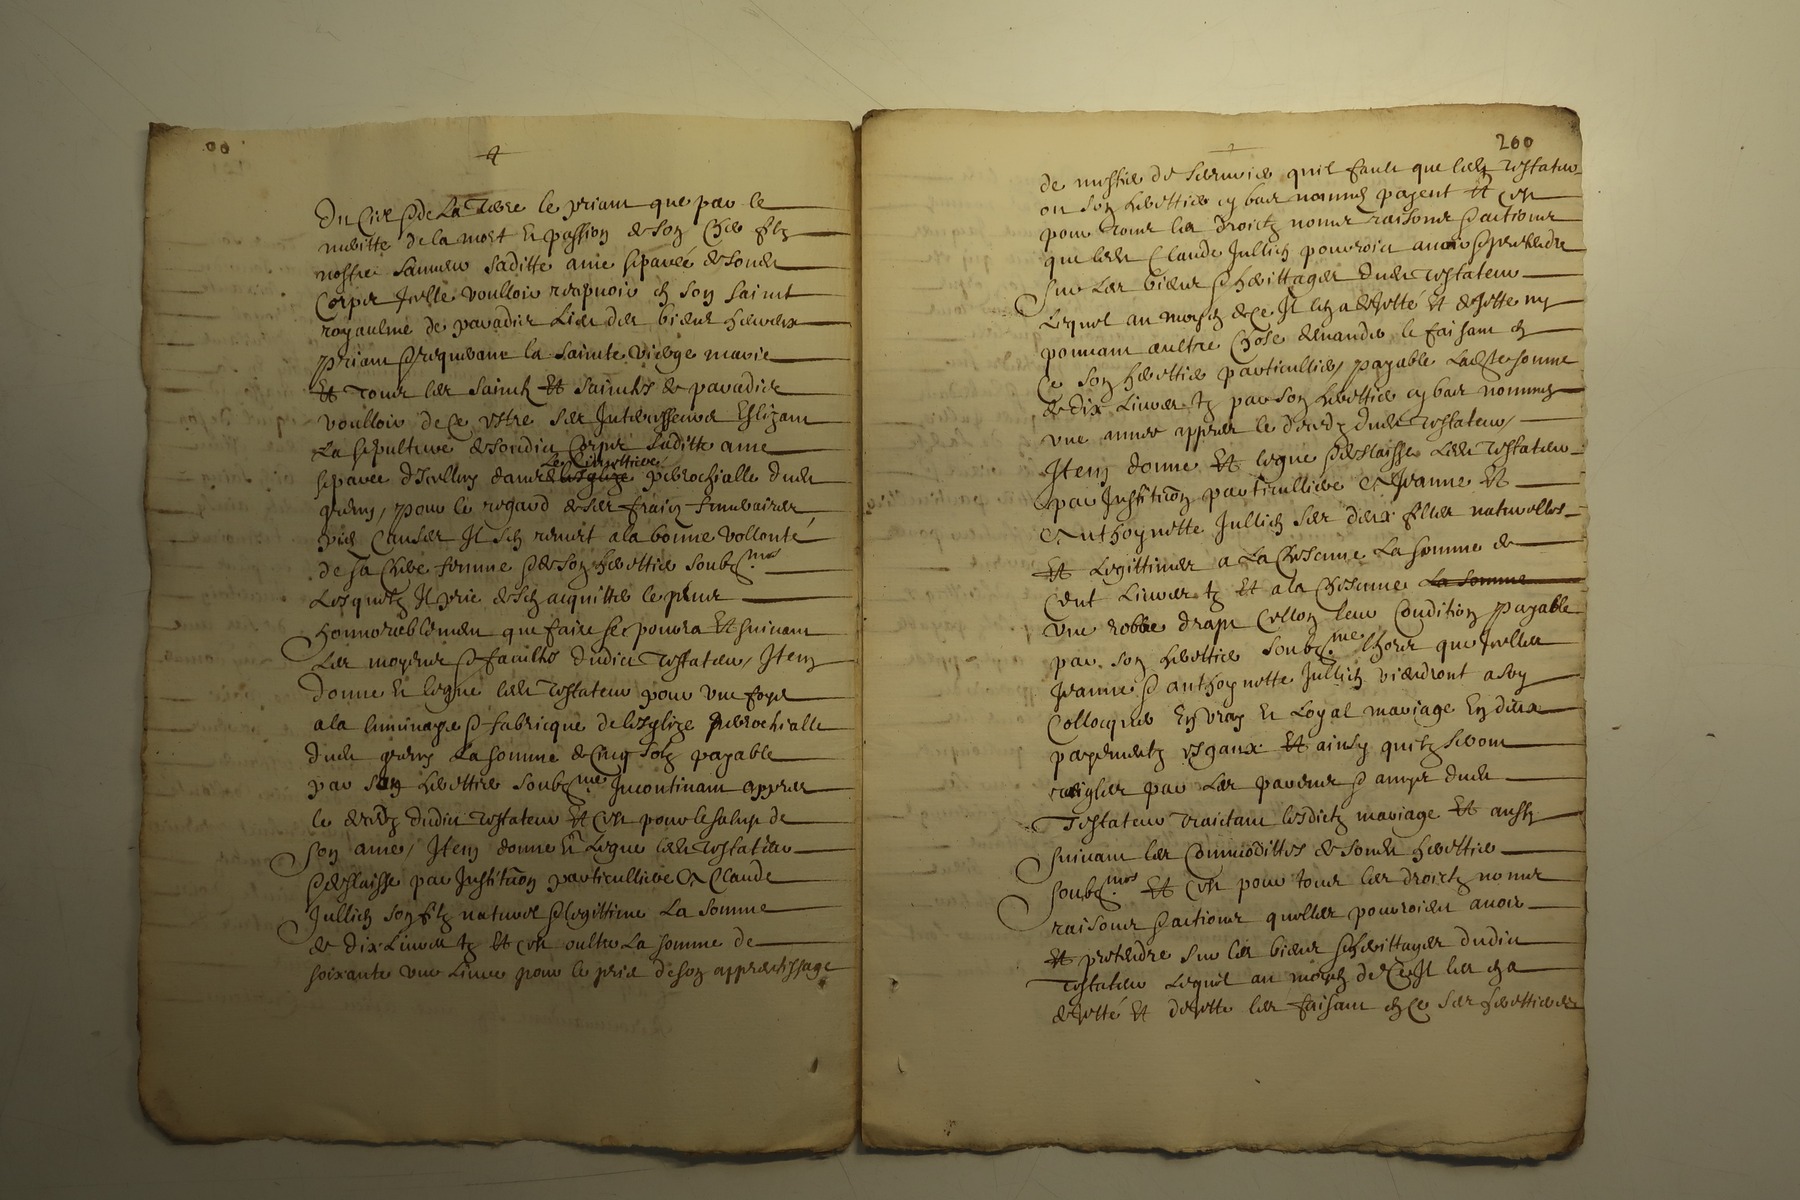 Du Ciel & de La Terre le priant que par le
meritte de la mort et passion de son Cher filz
nostre Sauveur saditte ame separée de son
Corps Jcelle voulloir recepvoir en son saint
royaulme de paradis Lieu des bieux heureux
priant & requerant la sainte vierge marie
Et tous les saints Et saintes de paradis
voulloir de Ce estre ses Intercesseurs Eslizant
La sepulture de sondict Corps laditte ame
separee d'Jcelluy dans le Cimettiere perochialle dud
pour le regard de ses frais funeraires
pies Causes Jl s'en remet a la bonne vollonté
de sa Chere femme & de son herettier soubz.nes
Lesquelz Jl prie de s'en acquitter le plus
honnorablement que faire se pourra Et suivant
Les moyens & facultes dudict Testateur / Item
donne et legue led Testateur pour une foys
a la luminaye & fabricque de l'esglize perochialle
dud La somme de Cinq solz payable
par son herettier soubz.me Incontinant appres
le decedz dudict testateur Et C'est pour le salut de
son ame / Item donne et Legue led Testateur
& deslaisse par Institution particulliere A Claude
Jullien son filz naturel & legittime La somme
de dix Livres tz Et C'est oultre La somme de
soixante une Livre pour le prix de son apprentissage
200
de mestier de qu'il fault que led Testateur
ou son herettier cy bas nommé payent Et C'est
pour tous les droictz noms raisons & actions
que led Claude Jullien pourroict avoir & pretendre
sur Les biens & herittages dud Testateur
Lequel au moyen de Ce Jl en a dejetté Et dejette ny
pouvant aultre Chose demander le faisant en
Ce son herettier particullier / payable Ladite somme
de dix Livres tz par son herettier cy bas nommé
une année appres le decedz dud Testateur /
Item donne Et legue & deslaisse led Testateur
par Institution particulliere A Jeanne Et
Anthoynette Jullien ses deux filles naturelles
Et Legittimes a La Chescune La somme de
Cent Livres tz Et a la Chescune
une robbe drapt sellon leur Condition payable
par son herettier soubz.me lhors que Jcelles
Jeanne & anthoynette Jullien viendront a soy
Collocquer En vray et Loyal mariage En deux
payementz esgaux Et ainsy qu'ilz seront
reiglés par Les parens & amys dud
Testateur traictant lesdictz mariage Et aussy
suivant les Commodittes de sond herettier
soubz.mes Et C'est pour tous les droictz noms
raisons & actions qu'elles pourroient avoir
Et pretendre sur les biens & herittages dudict
Testateur Lequel au moyen de Ce Jl les en a
dejetté Et dejette les faisant en Ce ses herettieres